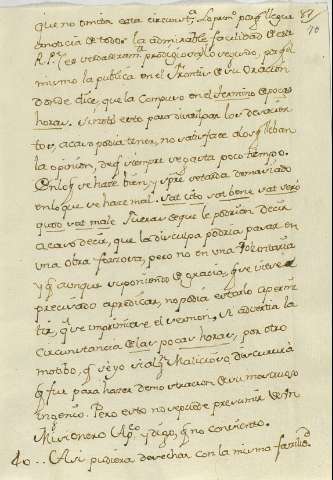 87
70
que no omita esta circunst.ª Lo prim.º porq̃ llegue
a noticia de todos la admirable facilidad de este
R.P. (es verdaderam.te prodigioso) lo segundo, porq̃ el
mismo la publica en el de su oracion
donde dice, que la Compuso en el termino de pocas
horas. Si esto para disculpar los
acaso podia tener, no satisface a los q̃ llevan
la opinion, de q̃ siempre se gasta poco tiempo.
En lo q̃ se hace bien, y spre se tarda demasiado
en lo que se hace mal. Sat cito sat bene, sat vero
quoo sat male. Fuera de que le podrian decir
acaso decir, que la disculpa podria pasar en
una obra forzosa, pero no en una Voluntaria
y q̃ aunque suponiendo de gracia, q̃ se viese
precisado a predicar, no podia estarlo a permi
tir, q̃ se imprimiese el sermon, si advertia la
circunstancia de las pocas horas, por otro
motibo, q̃ seyo si alg.n Malicioso discurrirá
q̃ fue para hacer demostracion de su
ingenio. Pero esto no se puede presumir de un
Misionero Ap.co y digo, q̃ no conviento.
40... Asi pudiera desechar con la misma familiarid.d